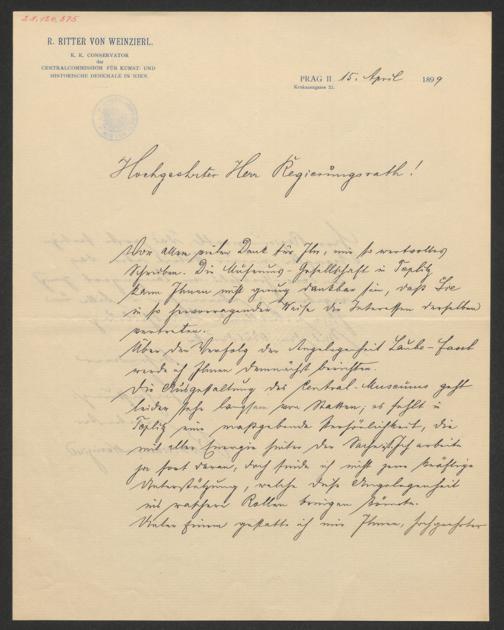 28.120.575
R. RITTER VON WEINZIERL.
K. K. CONSERVATOR
der
CENTRALCOMMISSION FÜR KUNST- UND
HISTORISCHE DENKMALE IN WIEN.
PRAG II 15. April 1899
Hochgeehrter Herr Regierungsrath!
Vor allem vielen Dank für Ihr, mir so wertvolles
Schreiben. Die Museums-Gesellschaft in Teplitz
kann Ihnen nicht genug dankbar sein, daß Sie
in so hervorragender Weise die Interessen derselben
vertreten.
Über den Verfolg der Angelegenheit Laube-
werde ich Ihnen demnächst berichten.
Die Ausgestaltung des Central-Museums geht
leider sehr langsam von Statten, es fehlt in
Teplitz eine maßgebende Persönlichkeit, die
mit aller Energie hinter der Sache. Ich arbeite
ja fort daran, doch finde ich nicht jene kräftige
Unterstützung, welche diese Angelegenheit
ins raschere Rollen bringen könnte.
Unter Einem gestatte ich mir Ihnen, hochgeehrter